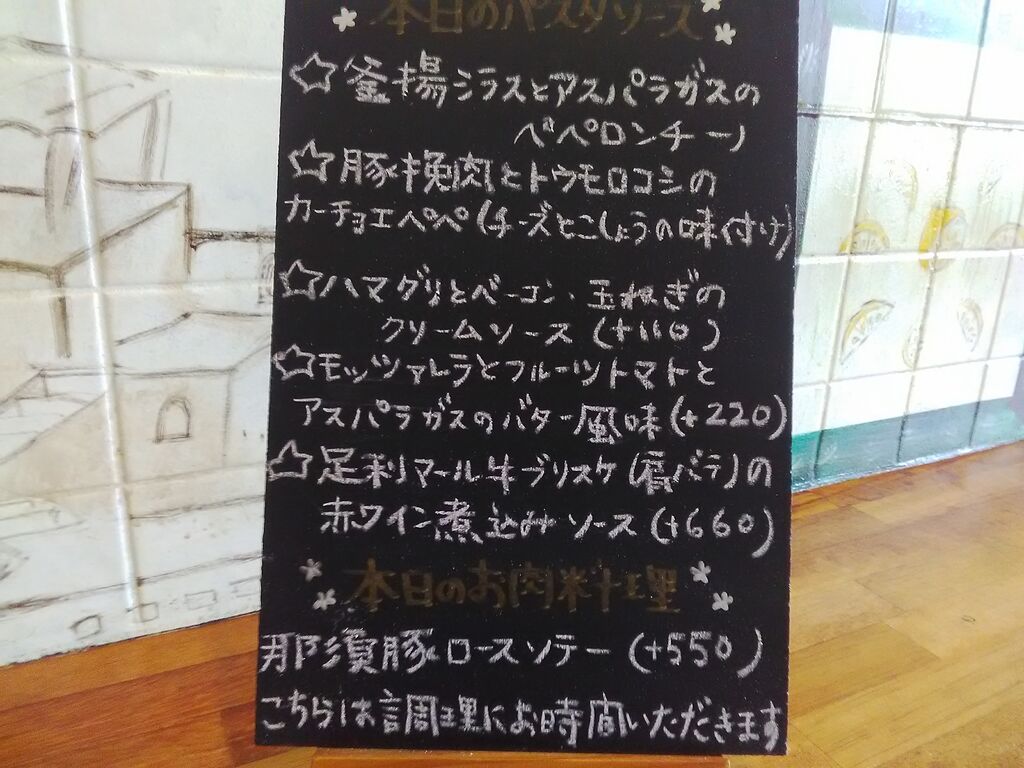 本日のパスタソース
☆釜揚シラスとアスパラガスの
ペペロンチーノ
☆豚挽肉とトウモロコシの
カーチョエペペ(チーズとこしょうの味付け)
☆ハマグリとベーコン、玉ねぎの
クリームソース(+110)
☆モッツァレラとフルーツトマトと
アスパラガスのバター風味(+220)
☆足利マール牛ブリスケ(肩バラ)の
赤ワイン煮込みソース(+660)
本日のお肉料理
那須豚ロースソテー(+550)
こちらは調理にお時間いただきます